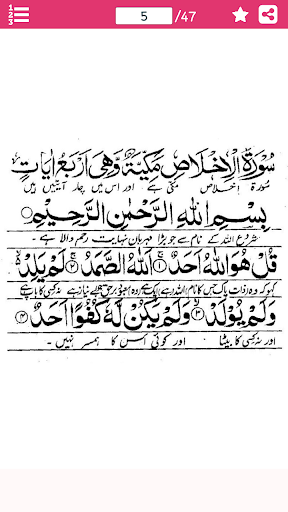 5 /47
سُوْرَةُ الْاِخْلَاصِ مَكِّيَّةٌ وَّهِيَ اَرْبَعُ اٰيَاتٍ
سورۃ اخلاص مکی ہے اور اس میں چار آیتیں ہیں
بِسْمِ اللهِ الرَّحْمٰنِ الرَّحِيْمِ
شروع اللہ کے نام سے جو بڑا مہربان نہایت رحم والا ہے
قُلْ هُوَ اللهُ اَحَدٌ ۝۱ اَللهُ الصَّمَدُ ۝۲ لَمْ يَلِدْ
کہو کہ وہ ذات پاک جس کا نام اللہ ہے ایک ہے وہ معبود برحق بے نیاز ہے نہ کسی کا باپ ہے
وَلَمْ يُوْلَدْ ۝۳ وَلَمْ يَكُنْ لَّهٗ كُفُوًا اَحَدٌ ۝۴
اور نہ کسی کا بیٹا اور کوئی اس کا ہمسر نہیں